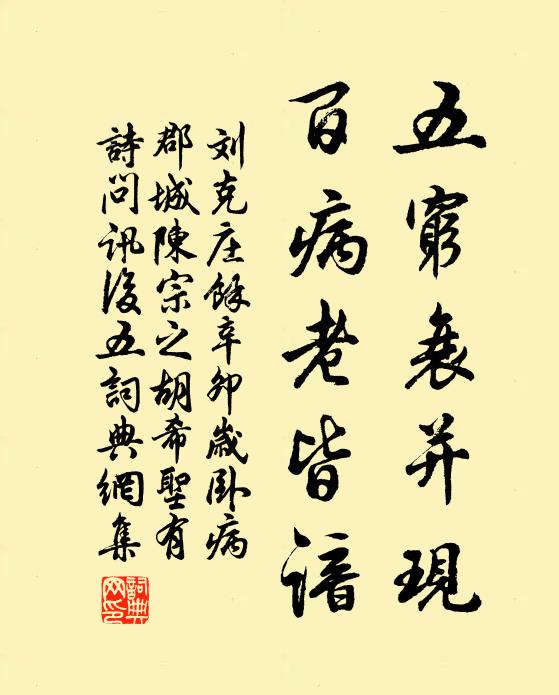 五窮衰并現
百病老皆諳
刘克庄餘辛卯歲卧病
郡城陳宗之胡希聖有
詩問訊後五詞典網集
詞典网印